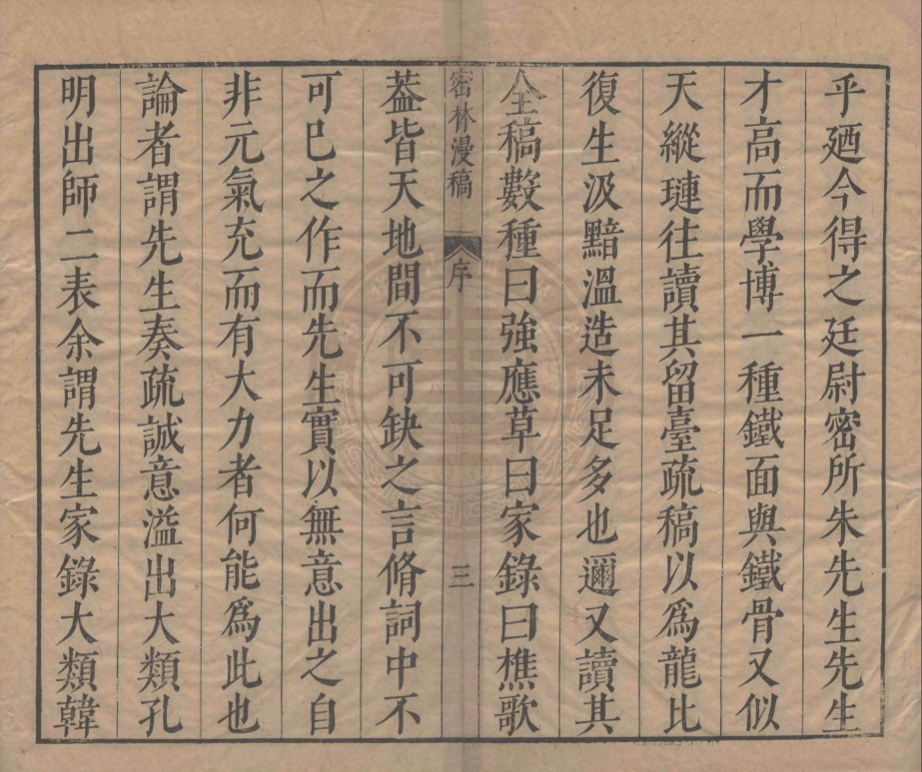 乎廼今得之廷尉密所朱先生先生
才高而學博一種鐵面與鐵骨又似
天縱璉往讀其留臺疏稿以爲龍比
復生汲黯溫造未足多也邇又讀其
全稿數種曰強應草曰家錄曰樵歌
密林漫稿 序 三
葢皆天地間不可缺之言脩詞中不
可已之作而先生實以無意出之自
非元氣充而有大力者何能爲此也
論者謂先生奏疏誠意溢出大類孔
明出師二表余謂先生家錄大類韓